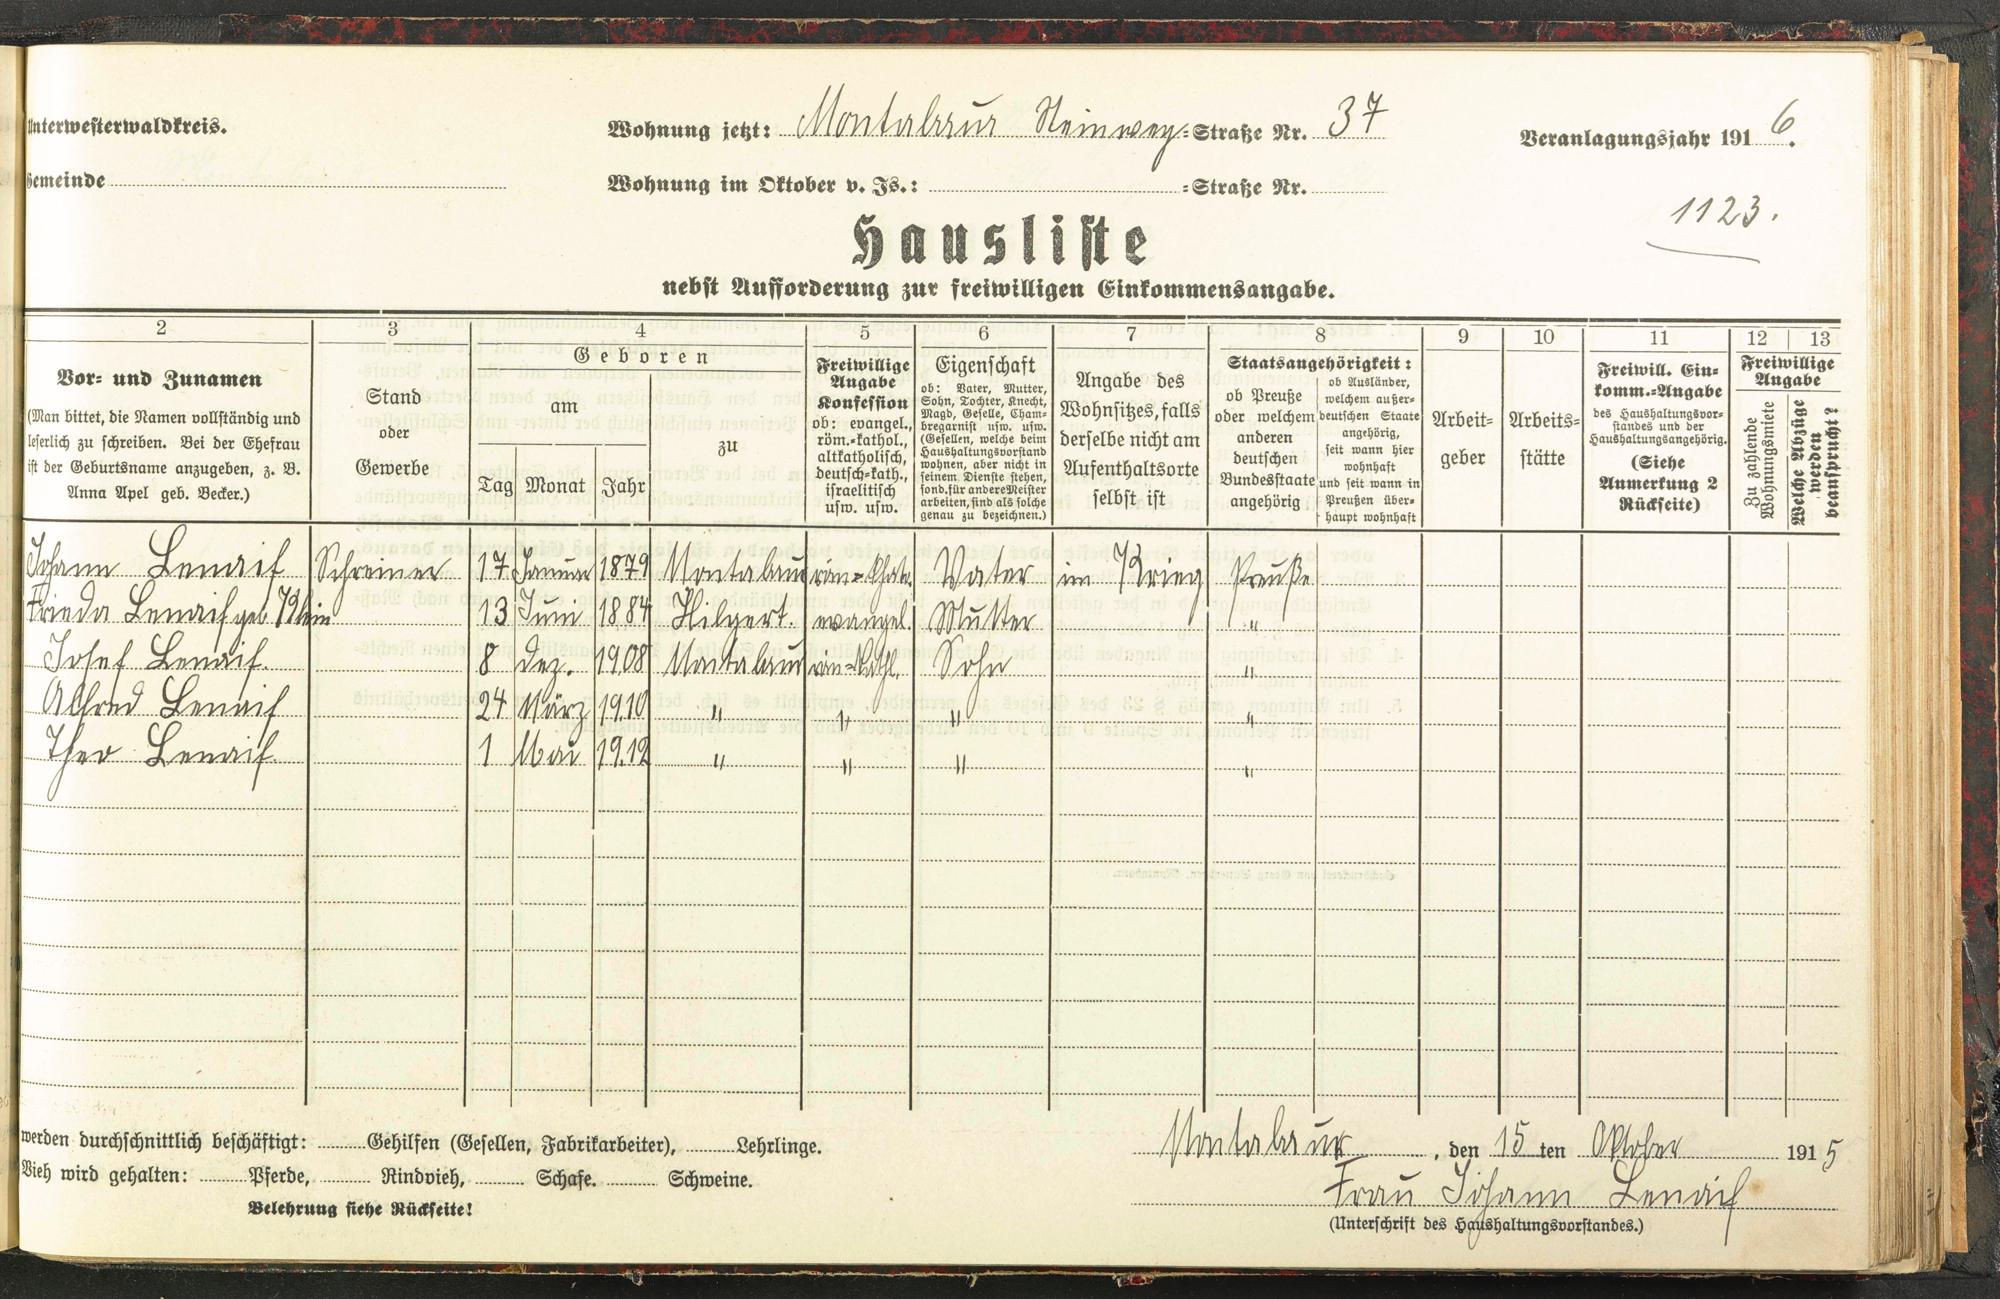 Unterwesterwaldkreis.
Wohnung jetzt: Montabaur Steinweg=Straße Nr. 37
Veranlagungsjahr 1916.
Gemeinde
Wohnung im Oktober v. Js.: =Straße Nr.
1123.
Hausliste
nebst Aufforderung zur freiwilligen Einkommensangabe.
2 3 4 5 6 7 8 9 10 11 12 13
Vor- und Zunamen
(Man bittet, die Namen vollständig und
leserlich zu schreiben. Bei der Ehefrau
ist der Geburtsname anzugeben, z. B.
Anna Apel geb. Becker.)
Stand
oder
Gewerbe
Geboren
am
Tag Monat Jahr
zu
Freiwillige
Angabe
Konfession
ob: evangel.,
röm.=kathol.,
altkatholisch,
deutsch=kath.,
israelitisch
usw. usw.
Eigenschaft
ob: Vater, Mutter,
Sohn, Tochter, Knecht,
Magd, Geselle, Cham=
bregarnist usw. usw.
(Gesellen, welche beim
Haushaltungsvorstand
wohnen, aber nicht in
seinem Dienste stehen,
sond. für andere Meister
arbeiten, sind als solche
genau zu bezeichnen.)
Angabe des
Wohnsitzes, falls
derselbe nicht am
Aufenthaltsorte
selbst ist
Staatsangehörigkeit:
ob Preuße
oder welchem
anderen
deutschen
Bundesstaate
angehörig
ob Ausländer,
welchem außer=
deutschen Staate
angehörig,
seit wann hier
wohnhaft
und seit wann in
Preußen über=
haupt wohnhaft
Arbeit=
geber
Arbeits=
stätte
Freiwill. Ein=
komm.=Angabe
des Haushaltungsvor=
standes und der
Haushaltungsangehörig.
(Siehe
Anmerkung 2
Rückseite)
Freiwillige
Angabe
Zu zahlende
Wohnungsmiete
Welche Abzüge
werden
beansprucht?
Johann Lenaif Schreiner 17 Januar 1879 Montabaur Vater im Krieg Preuße
Frieda Lenaif geb. 13 Juni 1884 Hilgert. evangel. Mutter "
Josef Lenaif. 8 Dez. 1908 Montabaur röm=kathl. Sohn "
Alfred Lenaif 24 März 1910 " " " "
Theo Lenaif. 1 Mai 1912 " " " "
werden durchschnittlich beschäftigt: Gehilfen (Gesellen, Fabrikarbeiter), Lehrlinge.
Vieh wird gehalten: Pferde, Rindvieh, Schafe. Schweine.
Belehrung siehe Rückseite!
Montabaur, den 15 ten Oktober 1915
Frau Johann Lenaif
(Unterschrift des Haushaltungsvorstandes.)